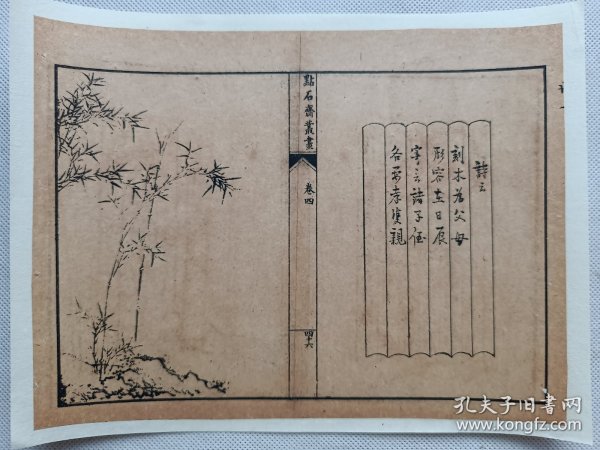 詩云
刻木為父母
形容在日辰
寄言諸子侄
各要孝雙親
點石齋叢畫
卷四
四十六
孔夫子旧書网
www.kongfz.com